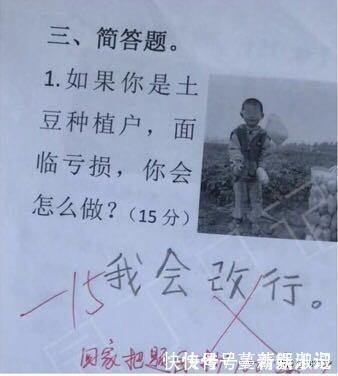 三、简答题。
1.如果你是土
豆种植户，面
临亏损，你会
怎么做？(15分)
我会改行。
-15
国家把
快传号